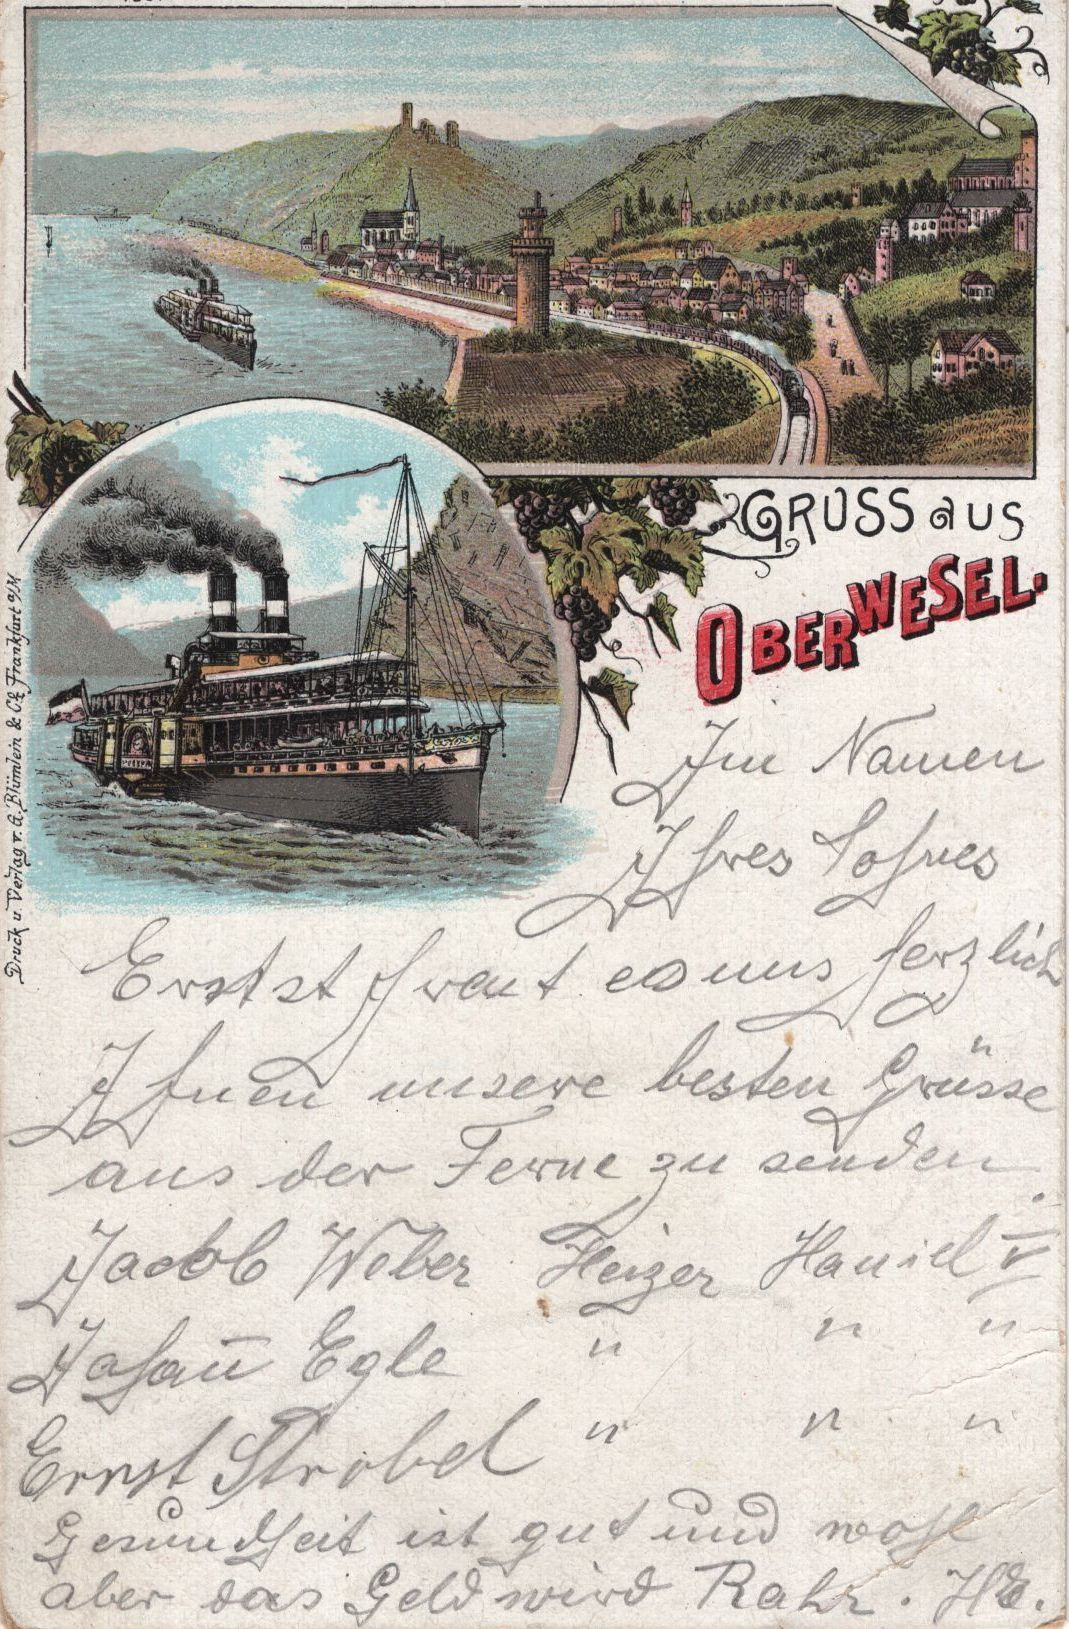 GRUSS aus
OBERWESEL.
Druck u. Verlag v. A. Blümlein & Co. Frankfurt a/M
Im Namen
Ihres Sohnes
Ernst freut es uns herzlich
Ihnen unsere besten Grüsse
aus der Ferne zu senden
Jacob Weber Heizer Haniel V
Egle " " "
Ernst Strobel " " "
Gesundheit ist gut und wohl
aber das Geld wird Rahr.